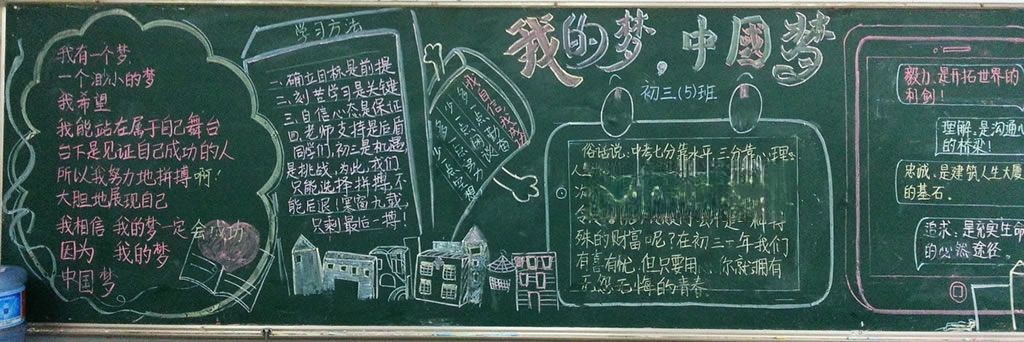 我的梦，中国梦
初三(5)班
我有一个梦
一个渺小的梦
我希望
我能站在属于自己舞台
台下是见证自己成功的人
所以我努力地拼搏啊!
大胆地展现自己
我相信 我的梦一定会成功
因为 我的梦
中国梦
学习方法
一、确立目标是前提
二、刻苦学习是关键
三、自信心态是保证
四、老师支持是后盾
同学们,初三是机遇
是挑战,为此,我们
只能选择拼搏,不
能后退!寒窗九载,
只剩最后一搏!
我自信我成功
俗话说:中考七分靠水平,三分靠心理
殊的财富呢?在初三一年我们
有喜有忧,但只要用、、你就拥有
无怨无悔的青春
毅力,是开拓世界的
利剑!
理解,是沟通心
的桥梁!
忠诚,是建筑人生大厦
的基石.
追求,是充实生命
的必然途径.